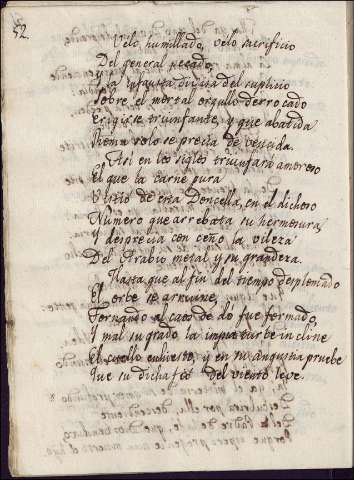 52.
Velo humillado, velo sacrificio
Del general pecado,
Y la infausta divisa del suplicio
Sobre el mortal orgullo derrocado
Erigirse triunfante, y que abatida
Roma solo se precia de vencida.
Asi en los siglos triunfará amoroso
El que la carne pura
Vistió de esta Doncella, en el dichoso
Número que arrebata su hermosura,
Y desprecia con ceño la vileza
Del Arabio metal y su grandeza.
Hasta que al fin del tiempo desplomado
El orbe se arruine,
Tornando al caos de do fue formado,
Y mal su grado la impia turba incline
El cuello enhiesto, y en su angustia pruebe
Que su dicha fió del viento leve.